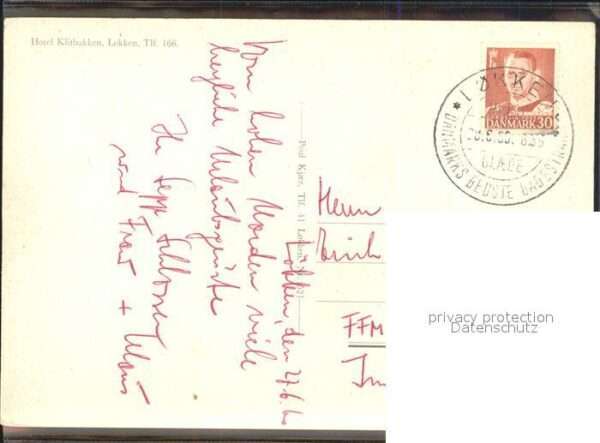 Hotel Klitbakken, Løkken, Tlf. 166.
Løkken, den 27.6.60
Vom hohen Norden viele
herzliche Urlaubsgrüße
Ihr Sepp Schlosser
und Frau + Klaus
Poul Kjær, Tlf. 41 Løkken
Herrn
Erich
FFM
LØKKEN
DANMARKS BEDSTE BADESTRAND
GLÆDE
DANMARK 30
privacy protection
Datenschutz